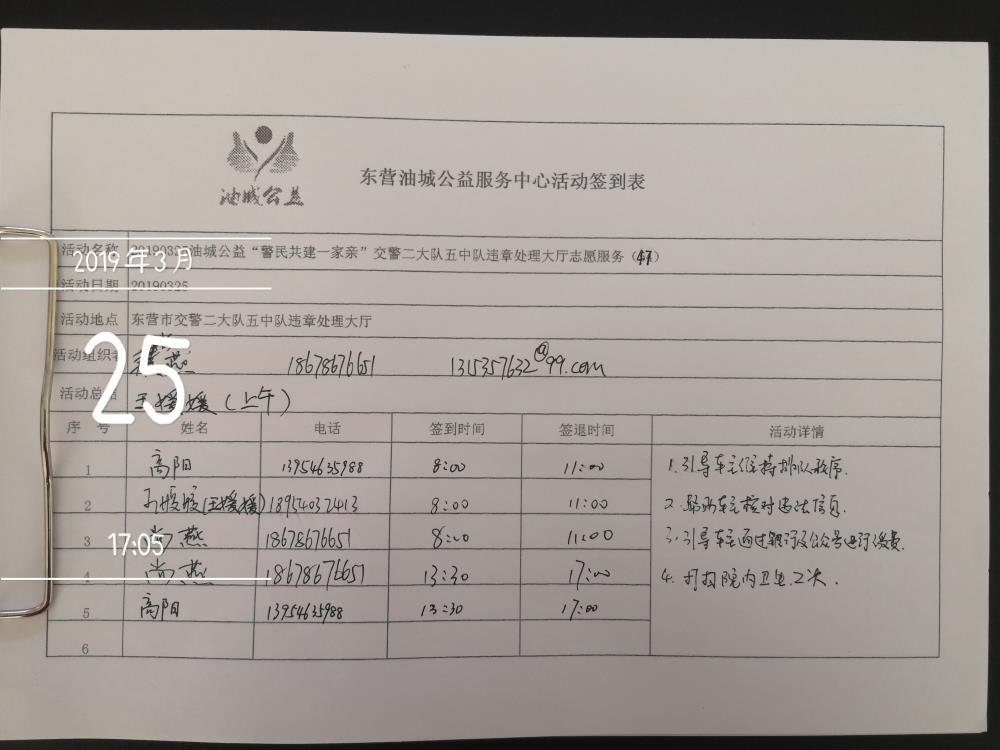 油城公益
东营油城公益服务中心活动签到表
活动名称 20190325油城公益“警民共建一家亲”交警二大队五中队违章处理大厅志愿服务（47）
2019年3月
活动日期 20190325
活动地点 东营市交警二大队五中队违章处理大厅
活动组织者 燕 18678676651 1315357632@99.com
25
活动总结 王媛媛（上午）
序号 姓名 电话 签到时间 签退时间 活动详情
1 高阳 13954635988 8:00 11:00 1.引导车主维持排队秩序.
2 王媛媛(王媛媛) 18954032413 8:00 11:00 2.帮助车主核对违法信息.
3 尚燕 18678676651 8:00 11:00 3.引导车主通过银行及公众号进行缴费.
17:05
4 尚燕 18678676651 13:30 17:00 4.打扫院内卫生2次.
5 高阳 13954635988 13:30 17:00
6